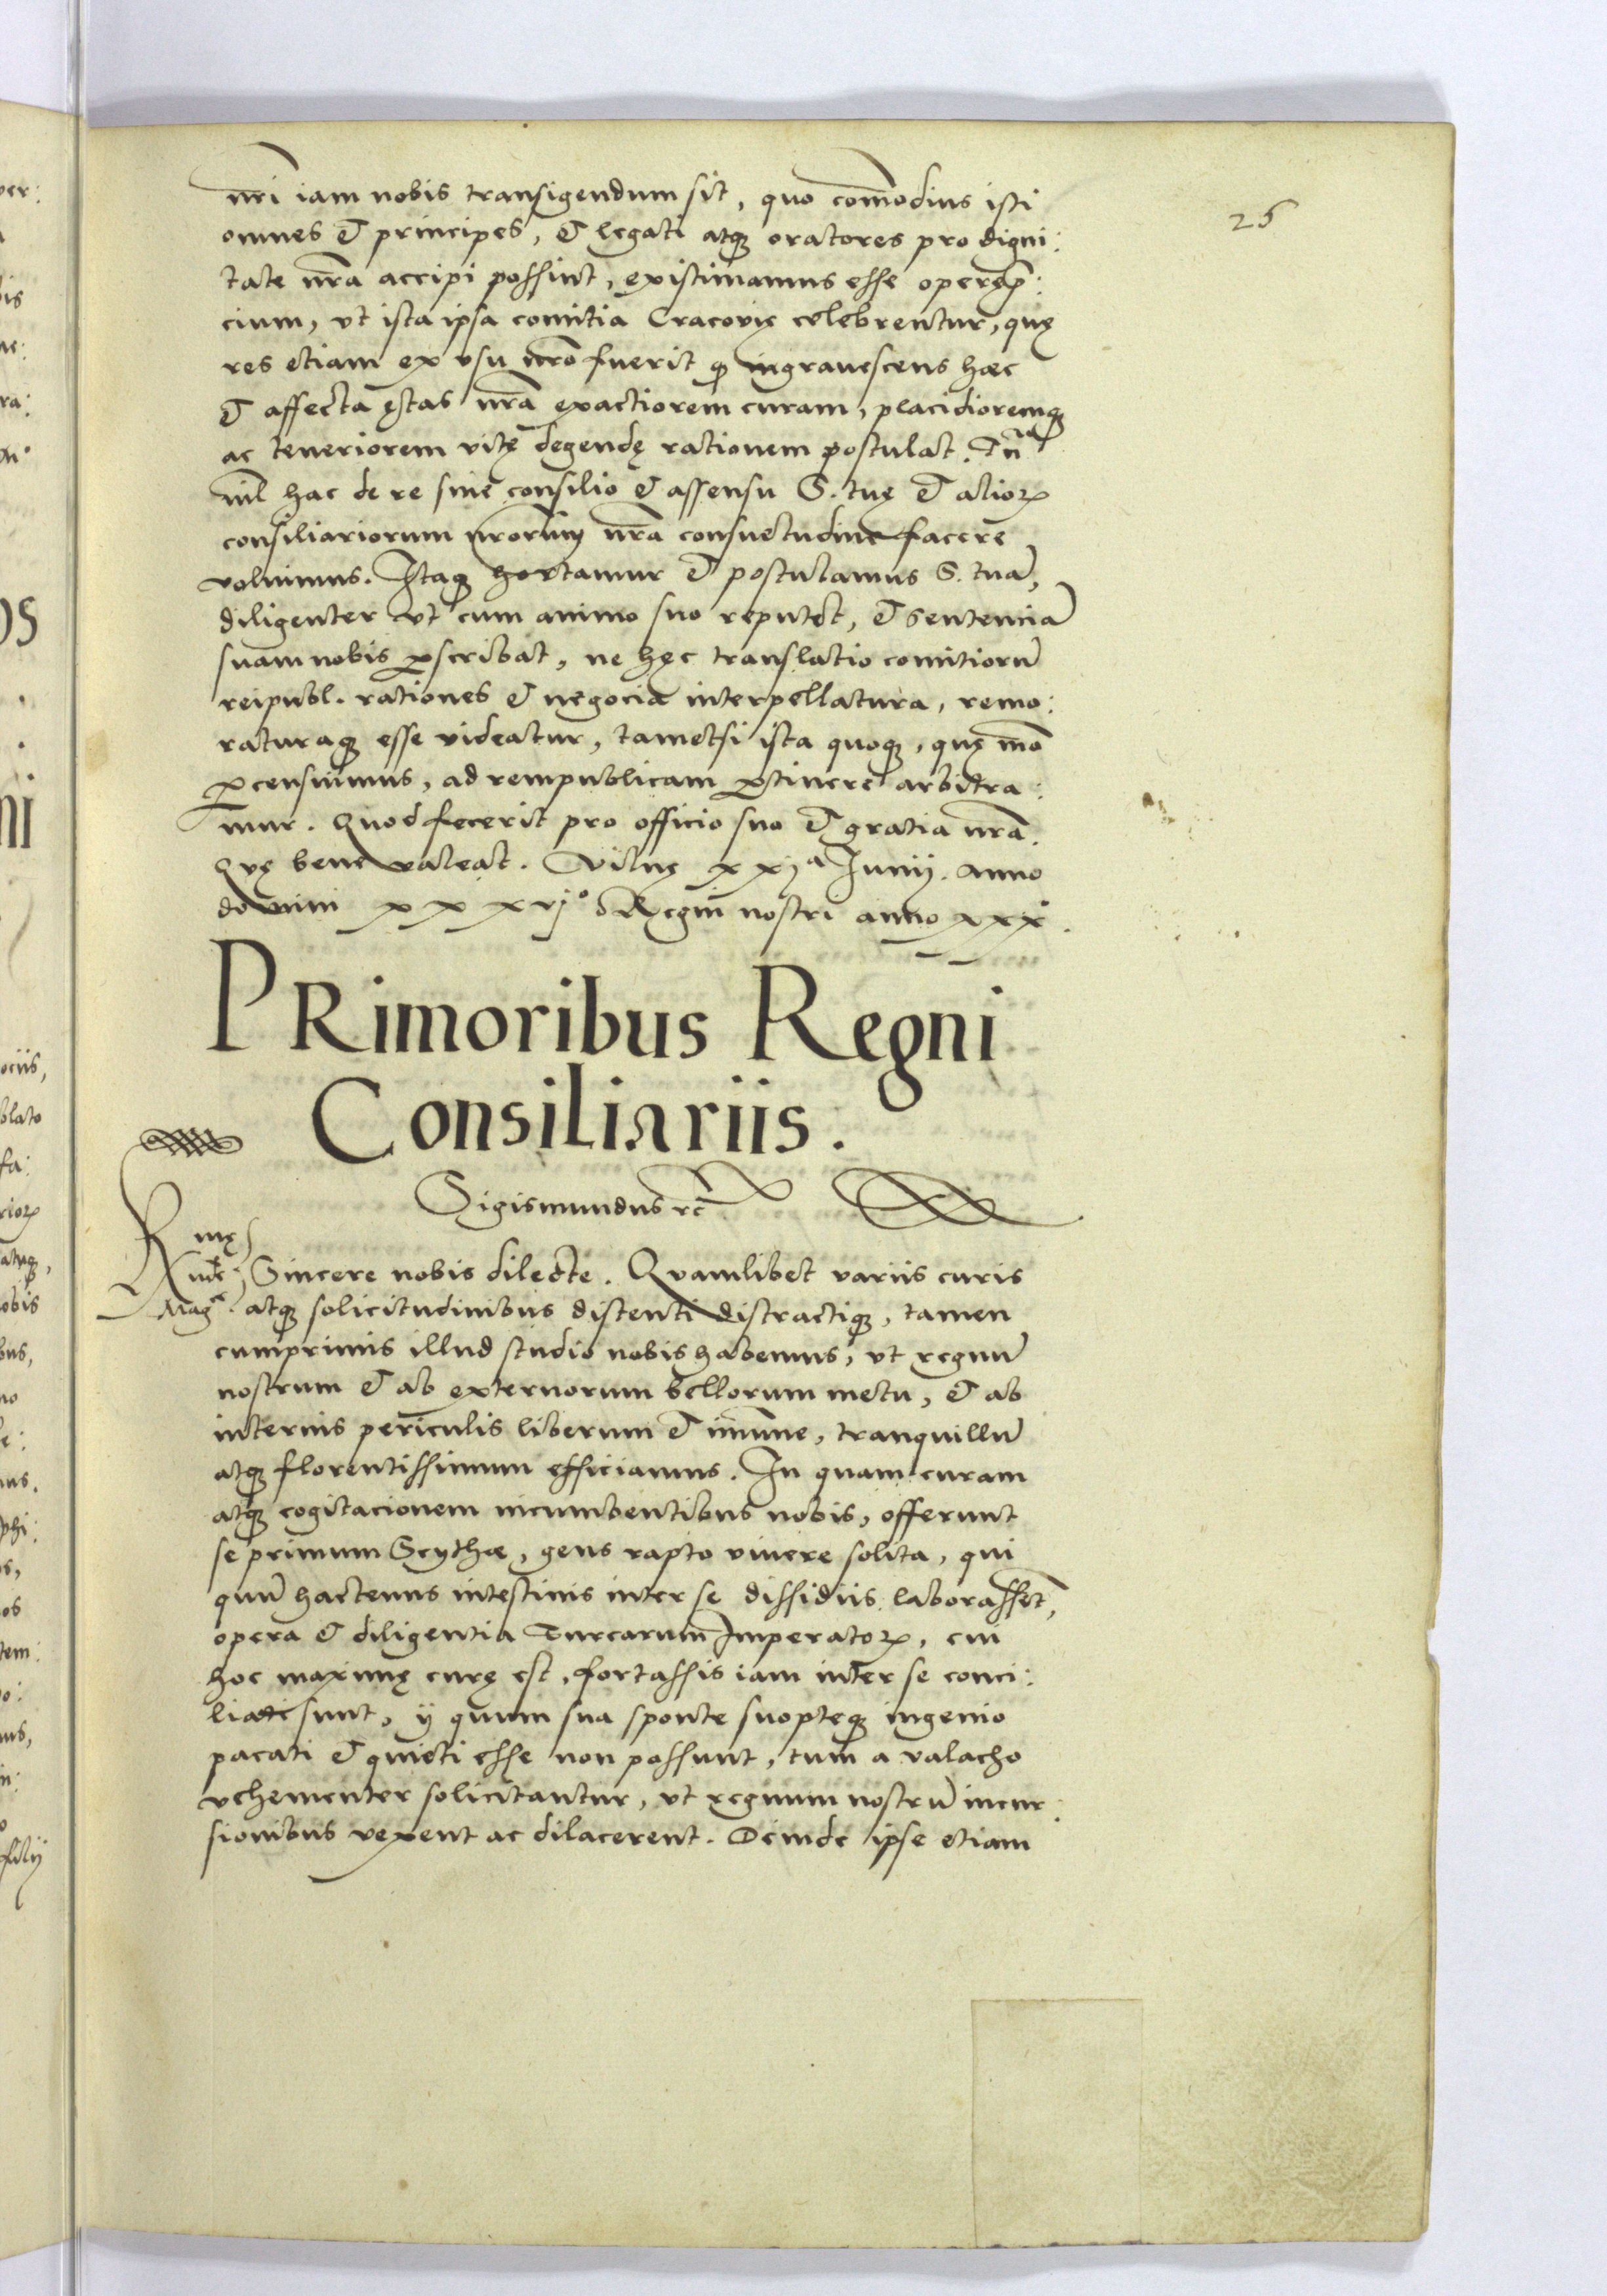 25
nr̃i iam nobis transigendum sit, quo com̃odius isti
omnes et principes, et legati atq̃ oratores pro digni:
tate nr̃a accipi possint, existimamus esse operęp̃:
cium, vt ista ipsa comitia Cracovię celebrentur, quę
res etiam ex vsu nr̃o fuerit q̃ ingrauescens hæc
et affecta ętas nr̃a exactiorem curam, placidioremq̃
ac teneriorem vitę degendę rationem postulat. Tñ
nil hac de re sine consilio et assensu S. tuę et alioꝝ
consiliariorum nr̃orum nr̃a consuetudine facere
voluimus. Itaq̃ hortamur et postulamus S. tuã,
diligenter vt cum animo suo reputet, et sentenciã
suam nobis ꝑscribat, ne hęc translatio comitiorũ
reipubl. rationes et negocia interpellatura, remo:
raturaq̃ esse videatur, tametsi ista quoq̃, quę mõ
ꝑcensuimus, ad rempublicam ꝑtinere arbitra:
mur. Quod fecerit pro officio suo et gratia nr̃a.
Quę bene valeat. Vilnę xxj a Junij. anno
domini xxxvj o Regni nostri anno xxx.
PRimoribus Regni
Consiliariis.
Sigismundus rc̃
R mę
R nde Sincere nobis dilecte. Quamlibet variis curis
Mag ce atq̃ solicitudinibus distenti distractiq̃, tamen
cumprimis illud studio nobis habemus, vt regnũ
nostrum et ab externorum bellorum metu, et ab
internis periculis liberum et im̃une, tranquillũ
atq̃ florentissimum efficiamus. In quam curam
atq̃ cogitacionem incumbentibus nobis, offerunt
se primum Scythæ, gens rapto viuere solita, qui
quũ hactenus intestinis inter se dissidiis laborassẽt,
opera et diligentia Turcarum Imperatoꝝ, cui
hoc maximę curę est, fortassis iam inter se conci:
liati sunt, ij quum sua sponte suopteq̃ ingenio
pacati et quieti esse non possunt, tum a valacho
vehementer solicitantur, vt regnum nostrũ incur:
sionibus vexent ac dilacerent. Deinde ipse etiam